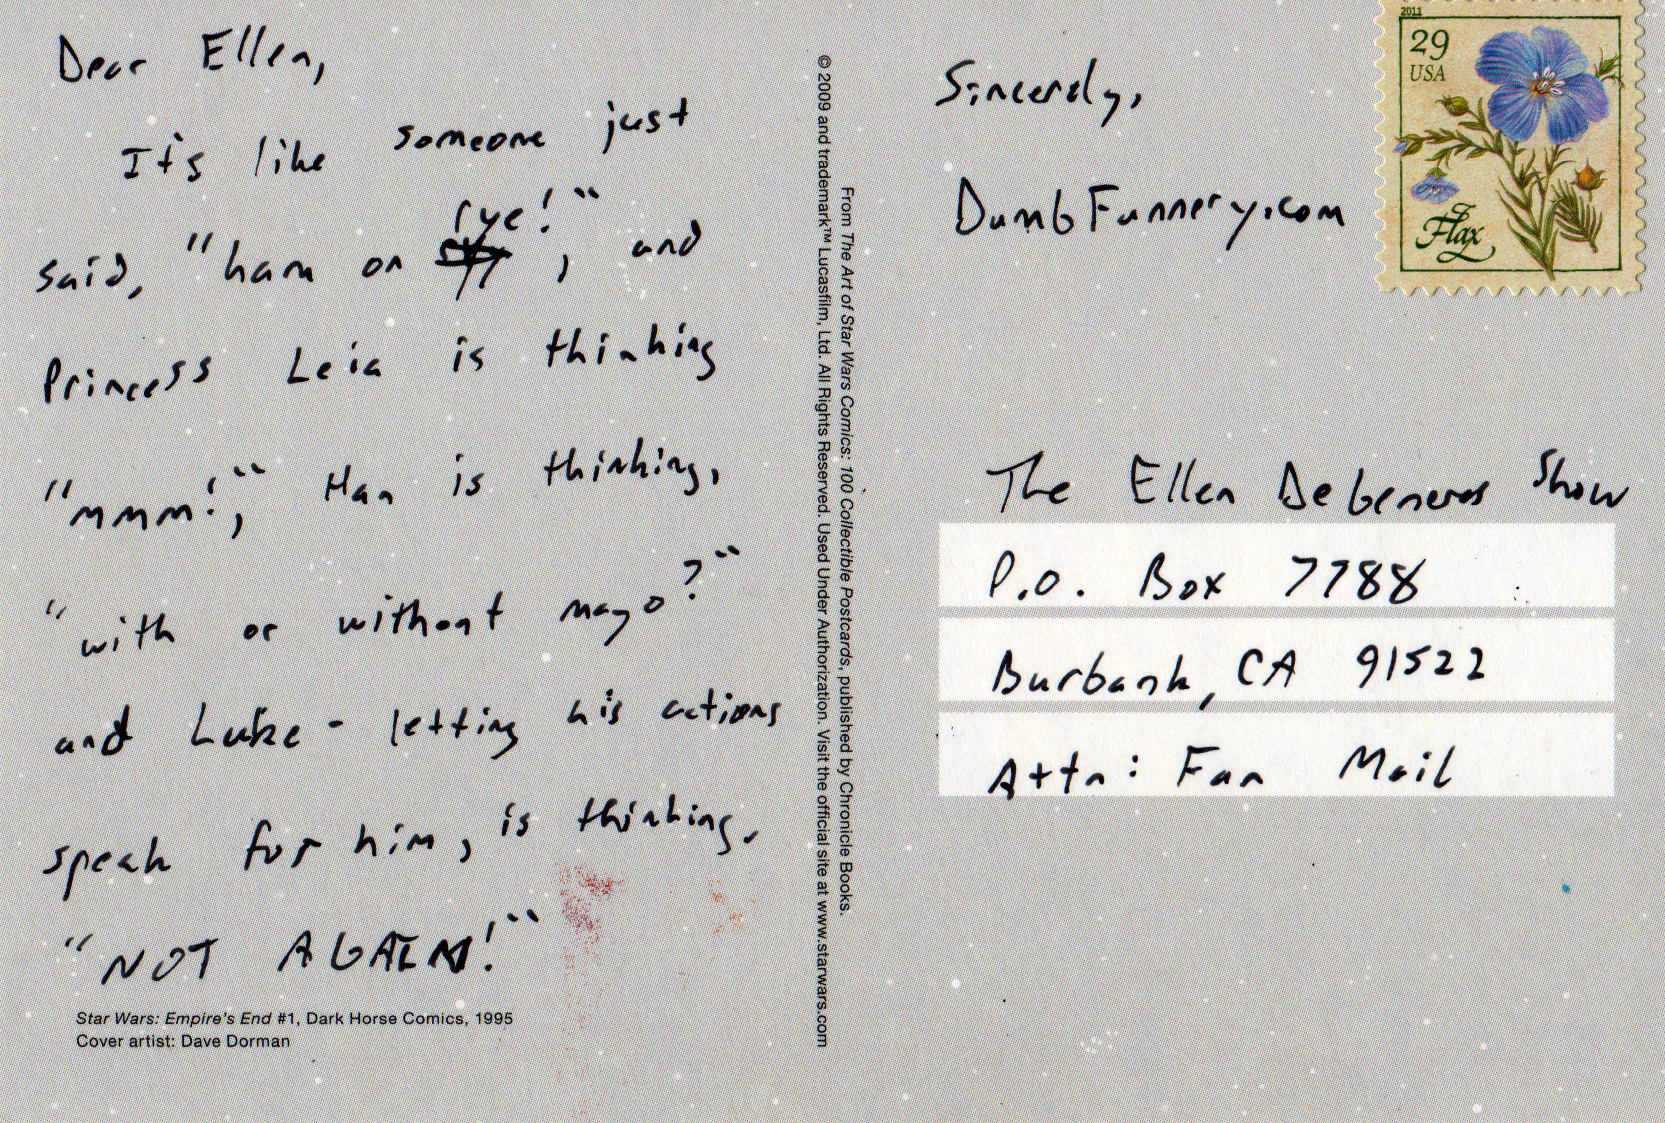 Dear Ellen,
It's like someone just
said, "ham on rye!", and
Princess Leia is thinking
"mmm!", Han is thinking,
"with or without mayo?"
and Luke - letting his actions
speak for him, is thinking,
"NOT AGAIN!"
Star Wars: Empire's End #1, Dark Horse Comics, 1995
Cover artist: Dave Dorman
From The Art of Star Wars Comics: 100 Collectible Postcards, published by Chronicle Books.
© 2009 and trademark™ Lucasfilm, Ltd. All Rights Reserved. Used Under Authorization. Visit the official site at www.starwars.com
Sincerely,
DumbFunnery.com
2011
29
USA
Flax
The Ellen DeGeneres Show
P.O. Box 7788
Burbank, CA 91522
Attn: Fan Mail